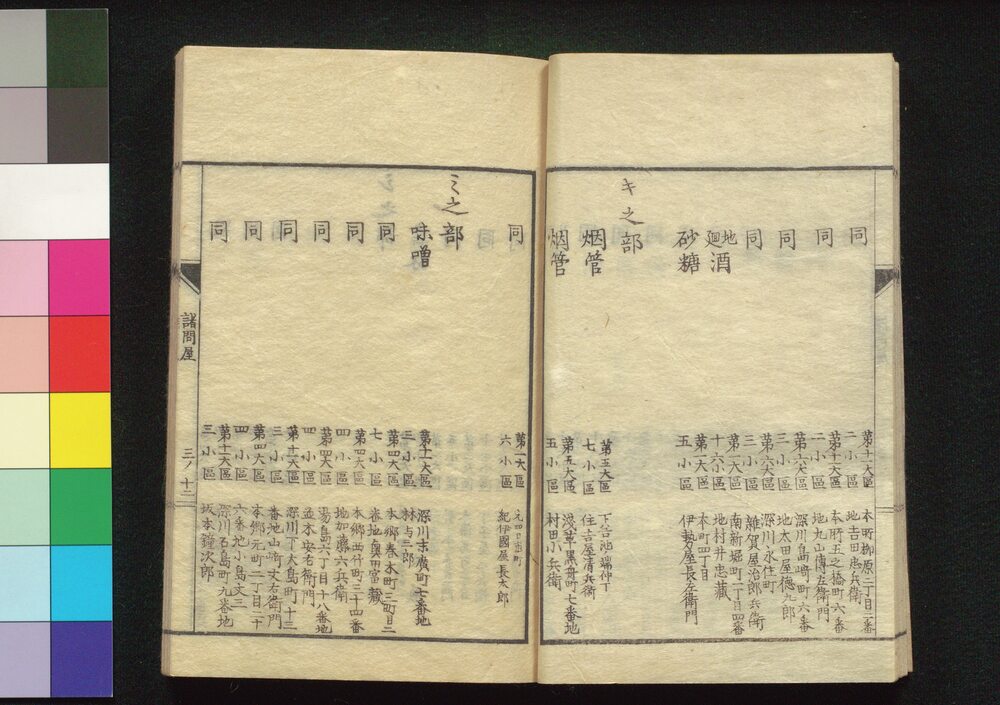 同
第十一大區
二小區
本所柳原二丁目二番
地吉田忠兵衛
同
第十一大區
二小區
本所五之橋町六番
地丸山傳左衛門
同
第六大區
三小區
深川島崎町六番
地太田屋徳九郎
同
第六大區
三小區
深川永住町
雜賀屋治郎兵衛
地廻酒
第一大區
十六小區
南新堀町一丁目四番
地村井忠藏
砂糖
第一大區
五小區
本町四丁目
伊勢屋長左衛門
キ之部
烟管
第五大區
七小區
下谷池端仲丁
住吉屋清兵衛
烟管
第五大區
五小區
淺草黒舟町七番地
村田小兵衛
同
第一大區
六小區
元四日市町
紀伊國屋長太郎
ミ之部
味噌
第十一大區
三小區
深川末廣町七番地
林与三郎
同
第四大區
七小區
本郷春木町三町目二
番地奥田富藏
同
第四大區
四小區
本郷西竹町三十四番
地加藤六兵衛
同
第四大區
四小區
湯島六丁目十八番地
並木安左衛門
同
第十一大區
三小區
深川下大島町十三
番地山崎丈右衛門
同
第四大區
四小區
本郷元町二丁目二十
六番地小島文三
同
第十一大區
三小區
深川石島町九番地
坂本鐘次郎
諸問屋
三ノ十二